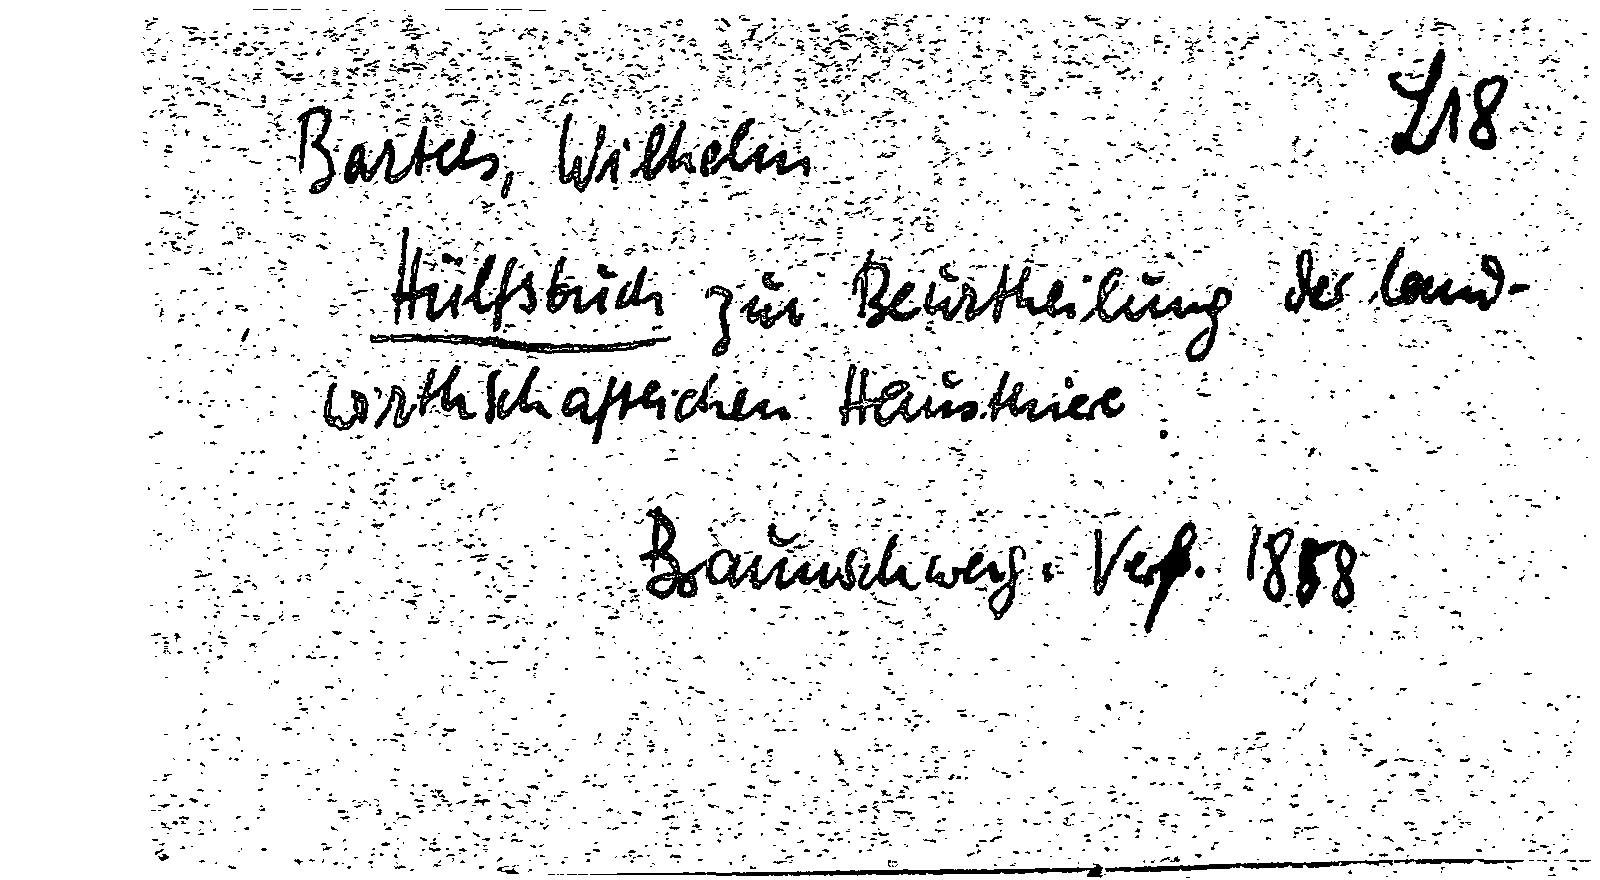 L18
Bartels, Wilhelm
Hülfsbuch zur Beurtheilung der land-
wirthschaftlichen Hausthiere.
Braunschweig. Verf. 1858